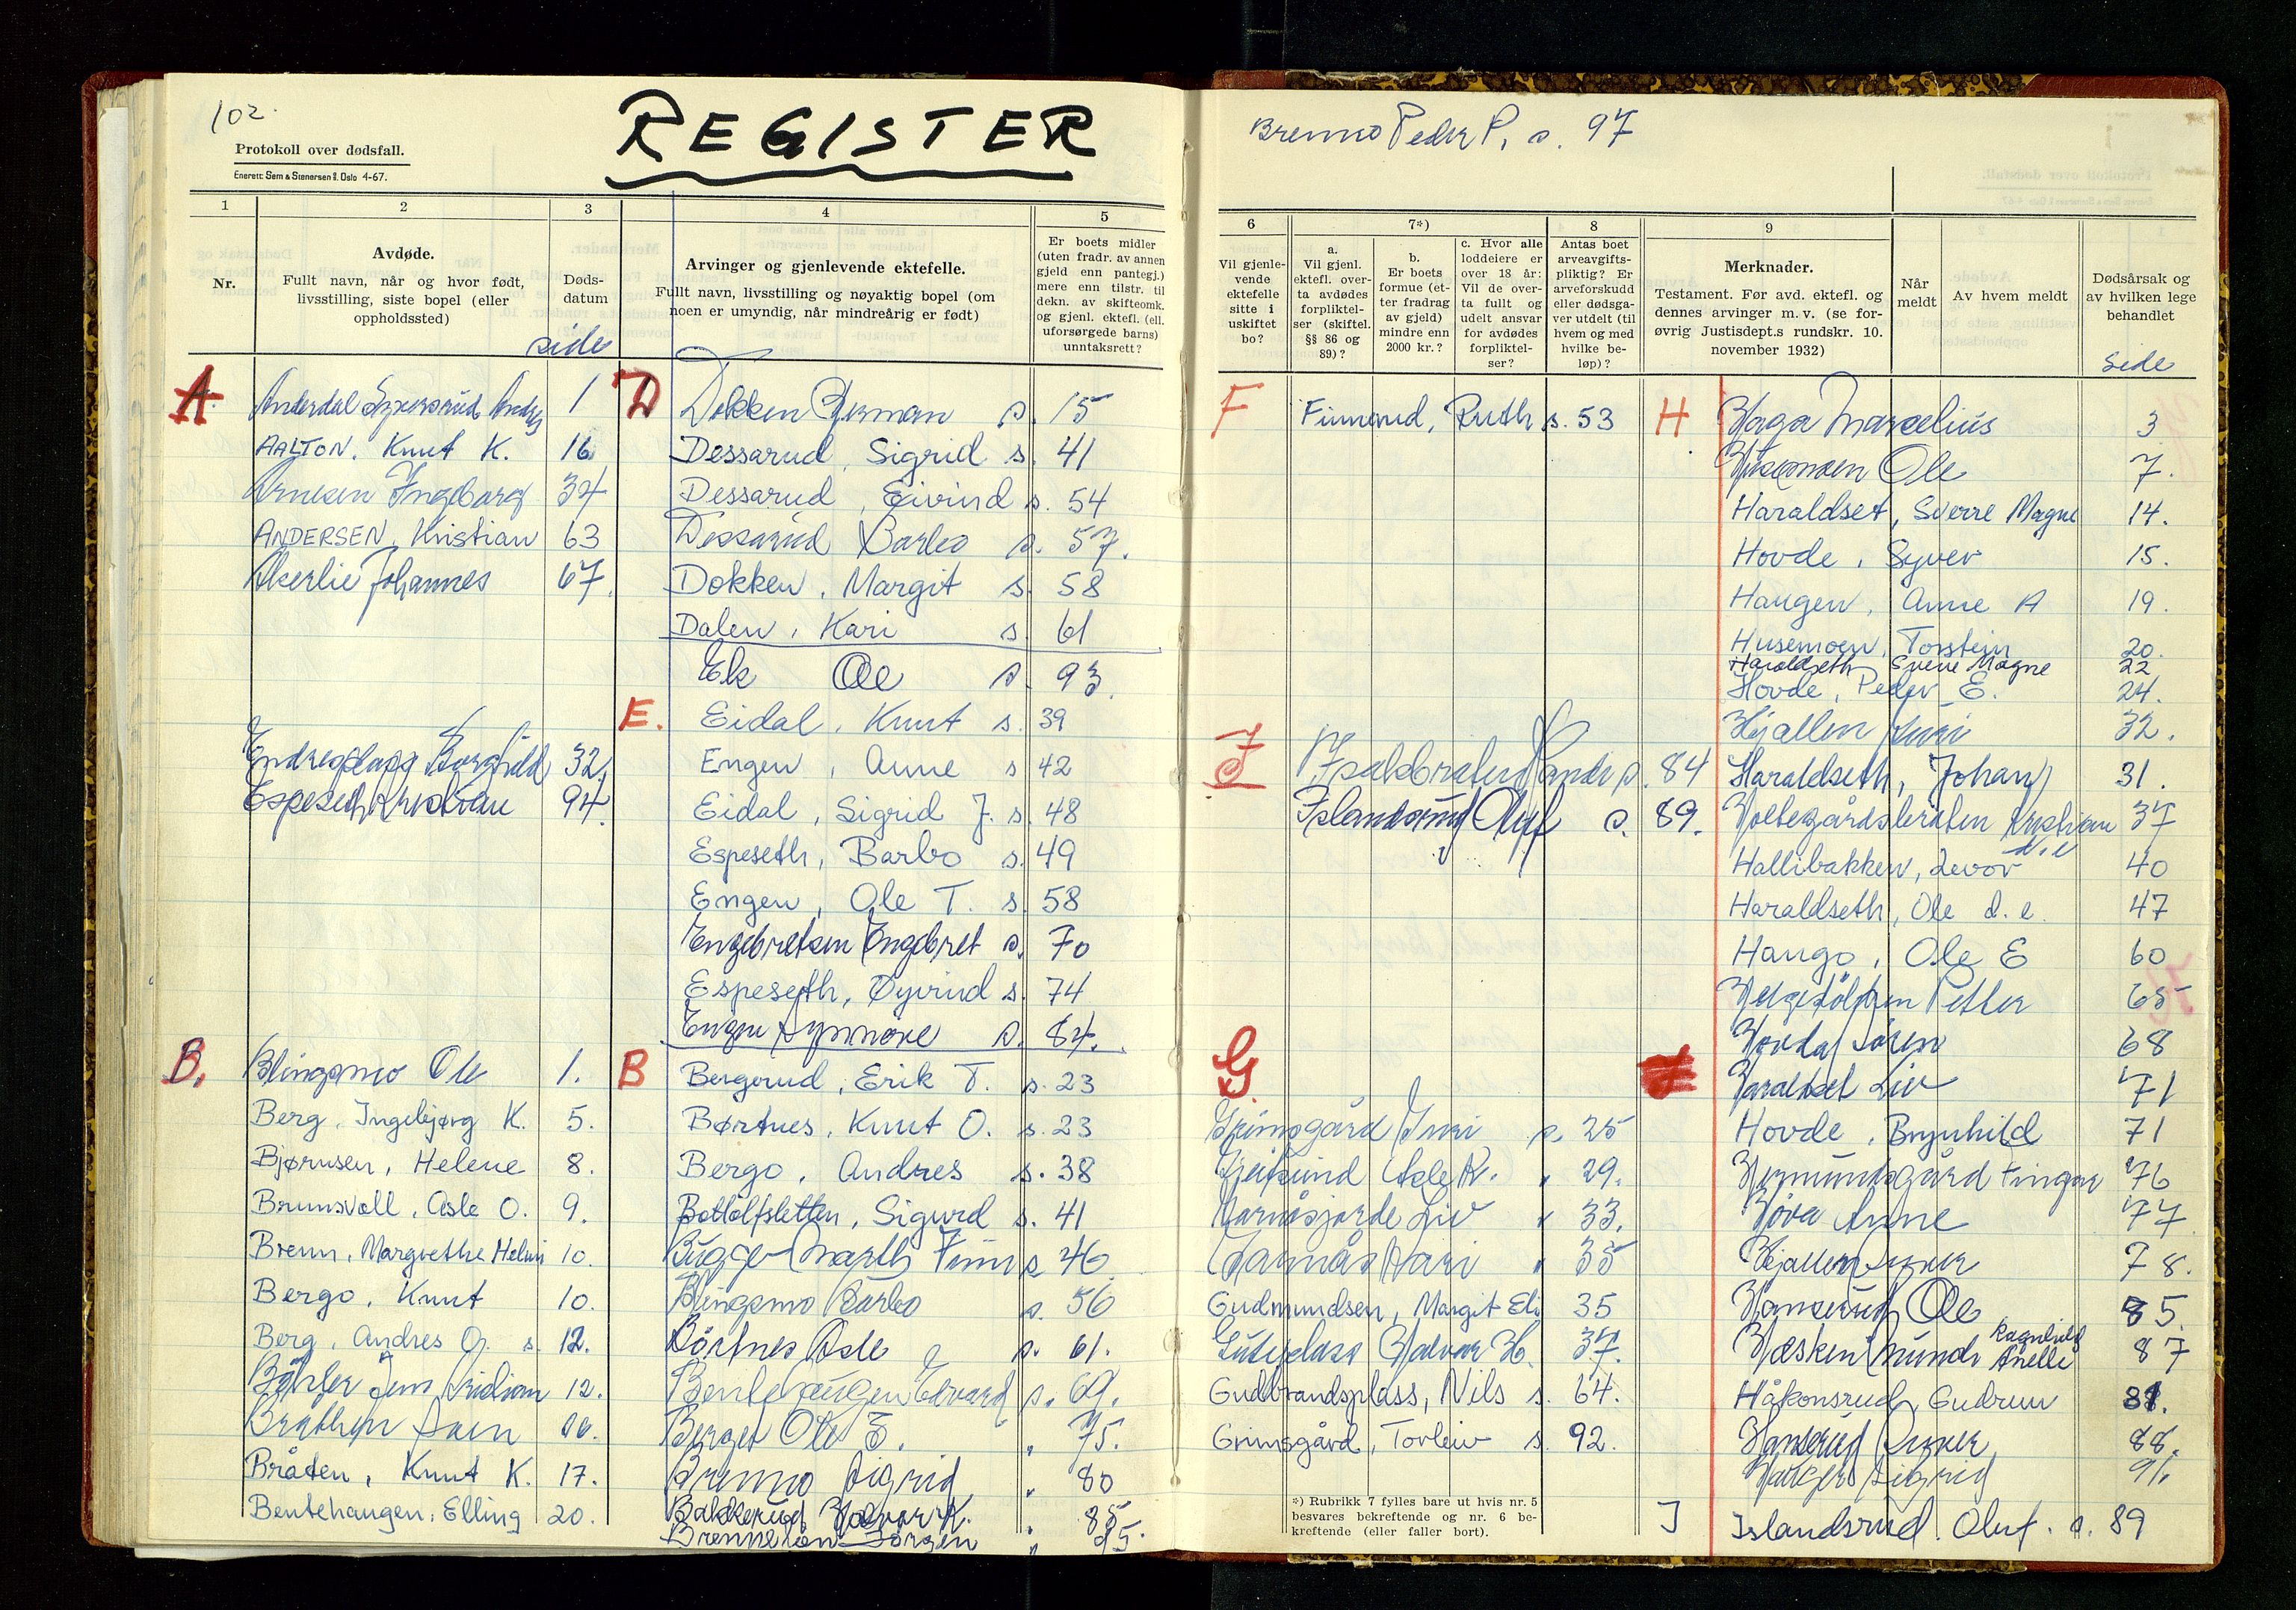 102.
REGISTER
Protokoll over dødsfall.
Enerett: Sem & Stenersen A/S, Oslo 4-67.
1
2
3
4
5
Nr.
Avdøde.
Fullt navn, når og hvor født,
livsstilling, siste bopel (eller
oppholdssted)
Døds-
datum
side
Arvinger og gjenlevende ektefelle.
Fullt navn, livsstilling og nøyaktig bopel (om
noen er umyndig, når mindreårig er født)
Er boets midler
(uten fradr. av annen
gjeld enn pantegj.)
mere enn tilstr. til
dekn. av skifteomk.
og gjenl. ektef. (ell.
uforsørgede barns)
unntaksrett?
A.
Anderdal Syversrud Anders 1
AALTON. Knut K. 16
Arnesen Ingeborg 34
ANDERSEN, Kristian 63
Akerlie Johannes 67.
Endresplass Borghild 32.
Espeseth Kristian 94.
B.
Blingsmo Ole 1.
Berg, Ingebjørg K. 5.
Bjørnsen, Helene 8.
Brunsvoll, Asle O. 9.
Brenn, Margrethe Helmi 10.
Bergo, Knut 10.
Berg, Andres O. s. 12.
Jens Kristian 12.
Bråthen Svein 16.
Bråten, Knut K. 17.
Bentehaugen, Elling 20.
D
Dokken Herman s. 15
Dessarud, Sigrid s. 41
Dessarud, Eivind s. 54
Dessarud Barbo s. 57.
Dokken, Margit s. 58
Dalen, Kari s. 61
Ek Ole s. 93.
E.
Eidal, Knut s. 39
Engen, Anne s 42
Eidal, Sigrid J. s. 48
Espeseth, Barbo s. 49
Engen, Ole T. s. 58
Engebretsen Engebret s. 70
Espeseth, Øyvind s. 74
Engen Synnøve s. 84.
B
Bergerud, Erik T. s. 23
Børtnes, Knut O. s. 23
Bergo, Andres s. 38
Bottolfsletten, Sigurd s. 41
Bugge Marth Finn s 46
Blingsmo Barbo s. 56
Børtnes Asle s. 61.
Bentehaugen Edvard s. 69.
Berget Ole E. " 75.
Brenno Sigrid " 80
Bakkerud Halvor K. " 85
Jørgen " 95.
Brenno Peder P. s. 97
6
7*)
8
9
Vil gjenle-
vende
ektefelle
sitte i
uskiftet
bo?
a.
Vil gjenl.
ektefl. over-
ta avdødes
forpliktel-
ser (skiftel.
§§ 86 og
89)?
b.
Er boets
formue (et-
ter fradrag
av gjeld)
mindre enn
2000 kr.?
c. Hvor alle
loddeiere er
over 18 år:
Vil de over-
ta fullt og
udelt ansvar
for avdødes
forpliktel-
ser?
Antas boet
arveavgifts-
pliktig? Er
arveforskudd
eller dødsga-
ver utdelt (til
hvem og med
hvilke be-
løp)?
Merknader.
Testament. Før avd. ektefl. og
dennes arvinger m. v. (se for-
øvrig Justisdept.s rundskr. 10.
november 1932)
Når
meldt
Av hvem meldt
Dødsårsak og
av hvilken lege
behandlet
Side
F
Finnerud, Ruth s. 53
I
Isakbråten s. 84
Islandsrud Oluf s. 89.
G.
Grimsgård Guri s. 25
Asle K. " 29.
Garnåsjorde Liv " 33.
Garnås Kari " 35
Gudmundsen, Margit Eli 35
Guteplass Halvor H. 37.
Gudbrandsplass, Nils s. 64.
Grimsgård, Torleiv s. 92.
*) Rubrikk 7 fylles bare ut hvis nr. 5
besvares bekreftende og nr. 6 be-
kreftende (eller faller bort).
H
Haga Marselius 3
Husemoen Ole 7.
Haraldset, Sverre Magne 14.
Hovde, Syver 15.
Haugen, Anne A 19.
Husemoen, Torstein 20.
Haraldseth, Sverre Magne 22
Hovde, Peder E. 24.
Hjallen Guri 32.
Haraldseth, Johan 31.
Holtegårdsbråten Kristian 37
Hallibakken, Levor d.e. 40
Haraldseth, Ole d. e. 47
Haugo, Ole E 60
Petter 65
Hovda Søren 68
Haraldset Liv 71
Hovde, Brynhild 71
Hermundsgård Fingar 76
Anne 77
Hjallen Syver 78.
Hanserud Ole 85.
Ragnhild
Anelli 87
Håkonsrud, Gudrun 81.
Hanserud Syver 88.
Hauger Sigrid 91.
I Islandsrud. Oluf. s. 89